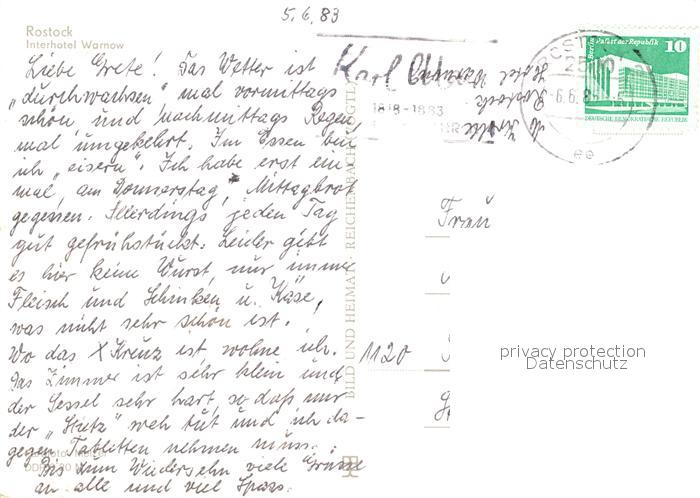 5.6.83
Rostock
Interhotel Warnow
Liebe Grete! Das Wetter ist
„durchwachsen" mal vormittags
schön und nachmittags Regen,
mal umgekehrt. Im Essen bin
ich „eisern". Ich habe erst ein
mal, am Donnerstag, Mittagbrot
gegessen. Allerdings jeden Tag
gut gefrühstückt. Leider gibt
es hier keine Wurst, nur immer
Fleisch und Schinken u. Käse,
was nicht sehr schön ist.
Wo das X Kreuz ist, wohne ich.
Das Zimmer ist sehr klein und
der Sessel sehr hart, so daß mir
der „Stietz" weh tut und ich da-
gegen Tabletten nehmen muss.
Bis zum Wiedersehn viele Grüsse
an alle und viel Spass.
BILD UND HEIMAT REICHENBACH (VOGTL)
Karl
1818-1883
Hotel Warnow
Rostock
Berlin, Palast der Republik
10
DEUTSCHE DEMOKRATISCHE REPUBLIK
-6.6.83
Frau
1120
privacy protection
Datenschutz